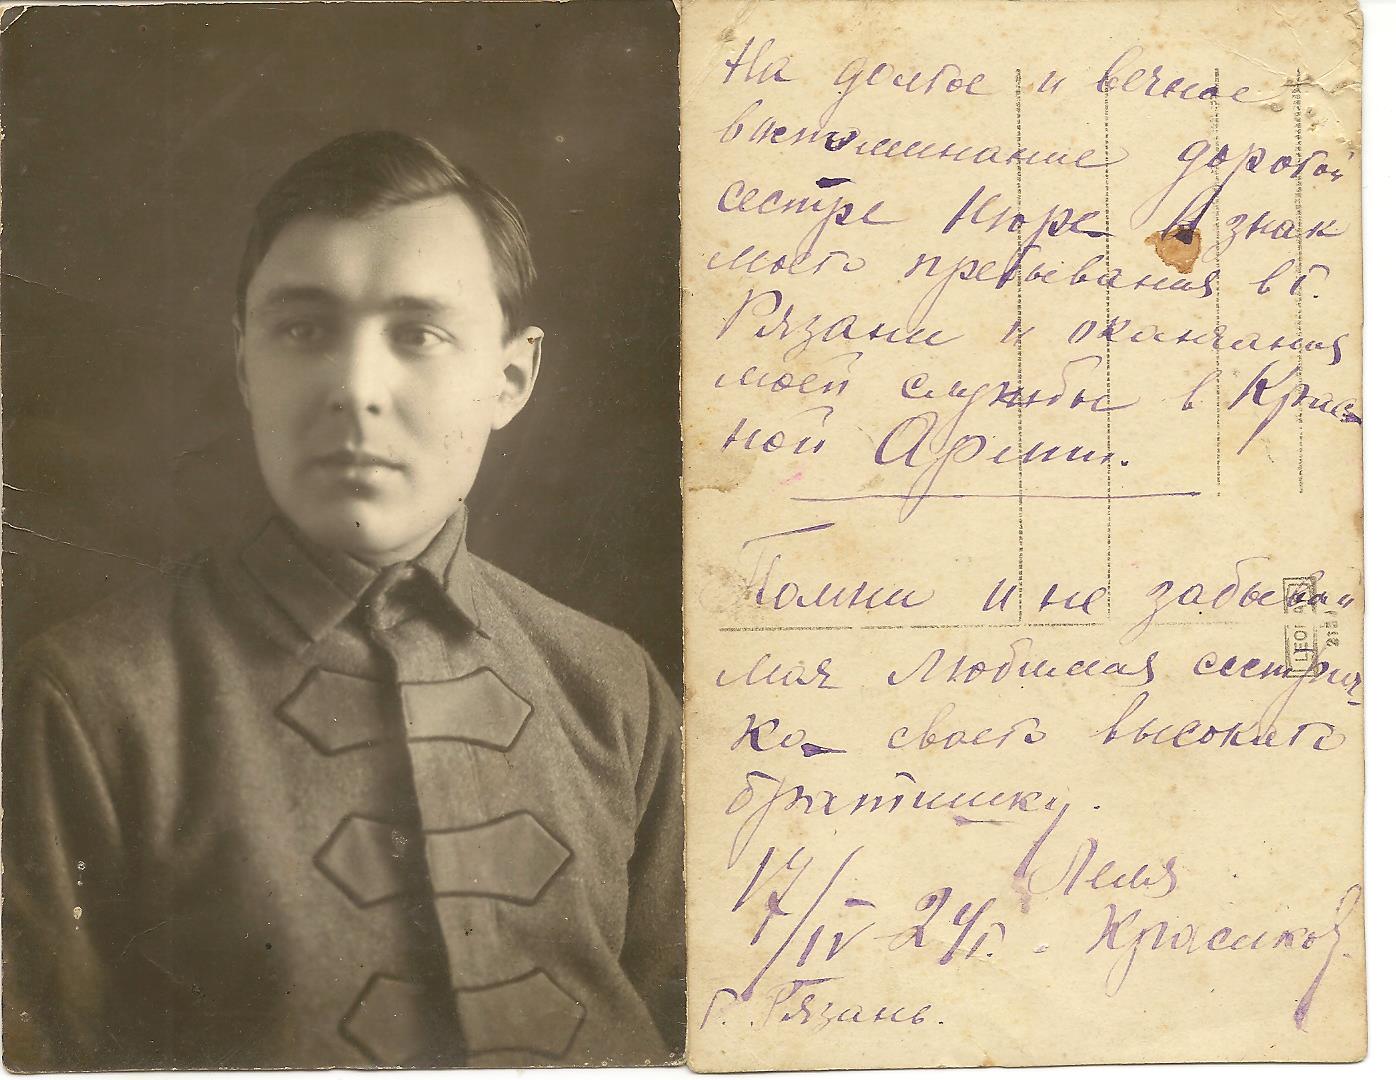 На долгое и вечное
воспоминание дорогой
сестре Нюре в знак
моего пребывания в г.
Рязани и окончания
моей службы в Крас-
ной Армии.
Помни и не забывай
моя любимая сестрич-
ка своего высокаго
братишку.
Леля
17/IV-24г. Красиков.
г. Рязань.